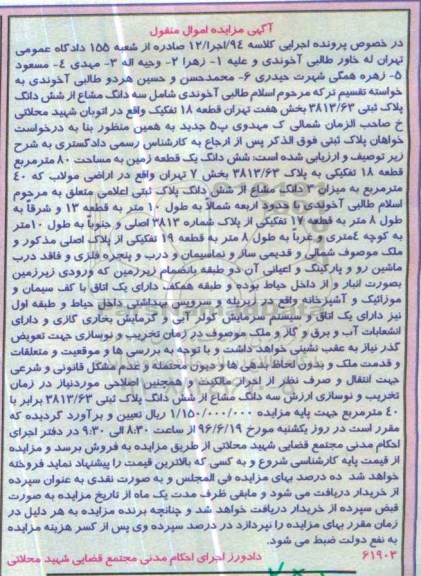 آگهی مزایده اموال منقول
در خصوص پرونده اجرایی کلاسه ۹۴/اجرا/۱۲ صادره از شعبه ۱۵۵ دادگاه عمومی
تهران له خاور طالبی آخوندی و علیه ۱- زهرا ۲- وجیه اله ۳- مهدی ۴- مسعود
۵- زهره همگی شهرت حیدری ۶- محمدحسن و حسین هردو طالبی آخوندی به
خواسته تقسیم ترکه مرحوم اسلام طالبی آخوندی شامل سه دانگ مشاع از شش دانگ
پلاک ثبتی ۳۸۱۳/۶۳ بخش هفت تهران قطعه ۱۸ تفکیک واقع در اتوبان شهید محلاتی
خ صاحب الزمان شمالی ک مهدوی پ۵ جدید به همین منظور بنا به درخواست
خواهان پلاک ثبتی فوق الذکر پس از ارجاع به کارشناس رسمی دادگستری به شرح
زیر توصیف و ارزیابی شده است: شش دانگ یک قطعه زمین به مساحت ۸۰ مترمربع
قطعه ۱۸ تفکیکی به پلاک ۳۸۱۳/۶۳ بخش ۷ تهران واقع در اراضی مولاب که ۴۰
مترمربع به میزان ۳ دانگ مشاع از شش دانگ پلاک ثبتی اعلامی متعلق به مرحوم
اسلام طالبی آخوندی با حدود اربعه شمالا به طول ۱۰ متر به قطعه ۱۳ و شرقاً به
طول ۸ متر به قطعه ۱۷ تفکیکی از پلاک شماره ۳۸۱۳ اصلی و جنوباً به طول ۱۰متر
به کوچه ۴متری و غرباً به طول ۸ متر به قطعه ۱۹ تفکیکی از پلاک اصلی مذکور و
ملک موصوف شمالی و قدیمی ساز و نماسیمان و درب و پنجره فلزی و فاقد درب
ماشین رو و پارکینگ و اعیانی آن دو طبقه بانضمام زیرزمین که ورودی زیرزمین
بصورت انبار و از داخل حیاط بوده و طبقه همکف دارای یک اتاق با کف سیمان و
موزائیک و آشپزخانه واقع در زیرپله و سرویس بهداشتی داخل حیاط و طبقه اول
نیز دارای یک اتاق و سیستم سرمایش کولر آبی و گرمایش بخاری گازی و دارای
انشعابات آب و برق و گاز و ملک موصوف در زمان تخریب و نوسازی جهت تعویض
گذر نیاز به عقب نشینی خواهد داشت و با توجه به بررسی ها و موقعیت و متعلقات
و قدمت ملک و بدون لحاظ بدهی ها و دیون محتمله و عدم مشکل قانونی و شرعی
جهت انتقال و صرف نظر از اجرای مالکیت و همچنین اصلاحی موردنیاز در زمان
تخریب و نوسازی ارزش سه دانگ مشاع از شش دانگ پلاک ثبتی ۳۸۱۳/۶۳ برابر با
۴۰ مترمربع جهت پایه مزایده ۱/۱۵۰/۰۰۰/۰۰۰ ریال تعیین و برآورد گردیده که
مقرر است در روز یکشنبه مورخ ۹۶/۶/۱۹ از ساعت ۸:۳۰ الی ۹:۳۰ در دفتر اجرای
احکام مدنی مجتمع قضایی شهید محلاتی از طریق مزایده به فروش برسد و مزایده
از قیمت پایه کارشناسی شروع و به کسی که بالاترین قیمت را پیشنهاد نماید فروخته
خواهد شد ده درصد بهای مزایده فی المجلس و به صورت نقدی به عنوان سپرده
از خریدار دریافت می شود و مابقی ظرف مدت یک ماه از تاریخ مزایده به صورت
قبض سپرده از خریدار دریافت خواهد شد و چنانچه برنده مزایده به هر دلیل در
زمان مقرر بهای مزایده را نپردازد در درصد سپرده وی پس از کسر هزینه مزایده
به نفع دولت ضبط می شود.
۶۱۹۰۳ دادورز اجرای احکام مدنی مجتمع قضایی شهید محلاتی